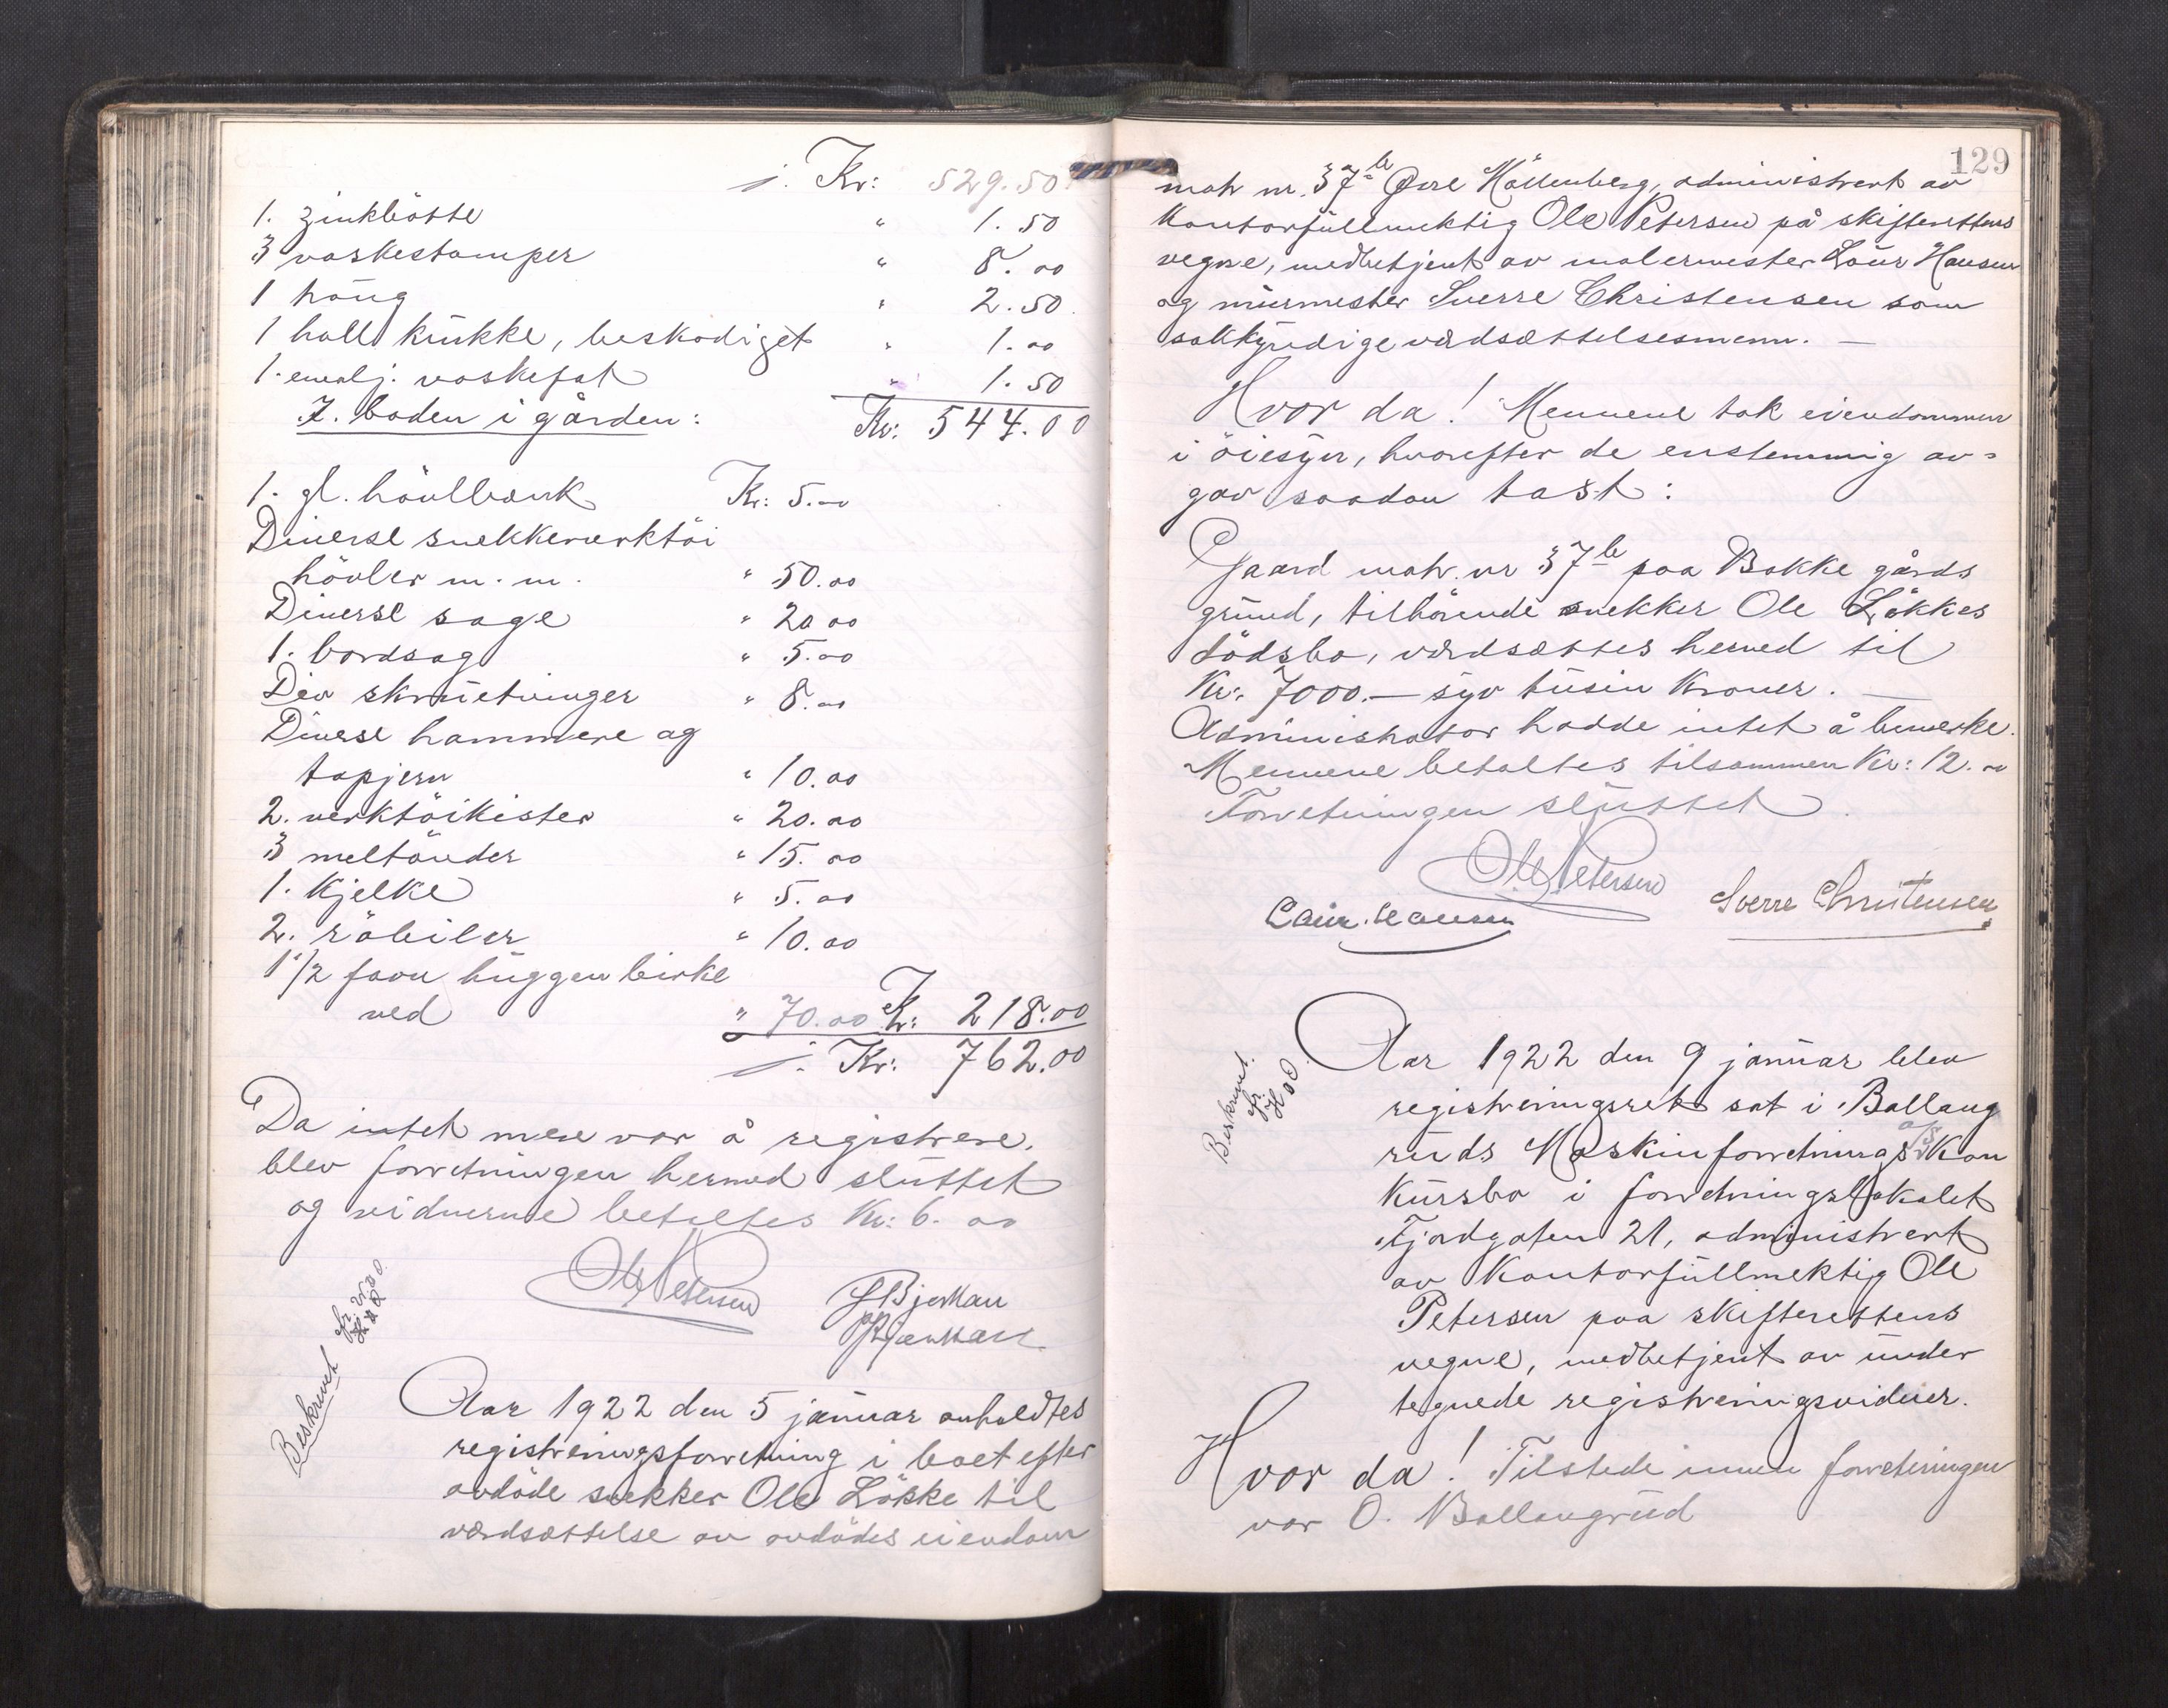 i. Kr: 529.50
1. zinkbötte " 1.50
3 vaskestamper " 8.00
1 haug " 2.50
1 hall krukke, beskadiget " 1.00
1. emalj. vaskefat " 1.50
I. boden i gården: Kr: 544.00
1. gl. hövlbænk Kr: 5.00
Diverse snekkerverktöi
hövler m.m. " 50.00
Diverse sage " 20 00
1. bordsag " 5.00
Div skruetvinger " 8.00
Diverse hammere og
tapjern " 10.00
2. verktöikister " 20.00
3 meltönder " 15.00
1. Kjelke " 5.00
2. råbiler " 10.00
1 1/2 favn huggen birke
ved " 70.00 Kr: 218.00
i. Kr: 762.00
Da intet mere var å registrere,
blev forretningen hermed sluttet
og vidnerne betaltes Kr: 6.00
Ole Petersen
Bjerkan
Beskrevet
Aar 1922 den 5 januar anholdtes
registreringsforretning i boet efter
avdöde snekker Ole Lökke til
værdsættelse av avdödes eiendom
129
matr nr. 37b Övre Möllenberg, administrert av
Kontorfullmektig Ole Petersen på skifterettens
vegne, medbetjent av malermester Laur Hansen
og murmester Sverre Christensen som
sakkyndige værdsættelsesmenn. —
Hvor da! Mennene tok eiendommen
i öiesyn, hvorefter de enstemmig av-
gav saadan takst:
Gaard matr. nr 37b paa Bakke gårds
grund, tilhörende snekker Ole Lökkes
dödsbo, værdsættes herved til
Kr: 7000.— syv tusin Kroner. —
Administrator hadde intet å bemerke.
Mennene betaltes tilsammen Kr: 12.00
Forretningen sluttet.
Ole Petersen
Laur. Hansen
Sverre Christensen
Beskrevet.
Aar 1922 den 9 januar blev
registreringsret sat i Ballang
ruds Maskinforretning a/s Kon
kursbo i forretningslokalet
Fjordgaten 21, administrert
av Kontorfullmektig Ole
Petersen paa skifterettens
vegne, medbetjent av under
tegnede registreringsvidner.
Hvor da! Tilstede under forretningen
var O. Ballangrud